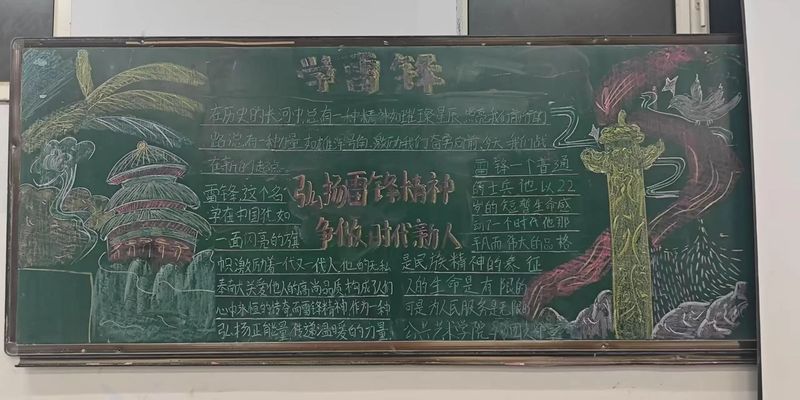 学雷锋
在历史的长河中总有一种精神如璀璨星辰照亮我们前行的
路总有一种力量如雄浑号角激励我们奋勇向前今天我们站
在新的起点
雷锋这个名
字在中国犹如
一面闪亮的旗
帜激励着一代又一代人他的无私
奉献关爱他人的高尚品质构成了人们
心中永恒的传奇而雷锋精神作为一种
弘扬正能量传递温暖的力量
弘扬雷锋精神
争做时代新人
雷锋一个普通
的士兵他以22
岁的短暂生命感
动了一个时代他那
平凡而伟大的品格
是民族精神的象征
人的生命是有限的
可是为人民服务是无限的
学院